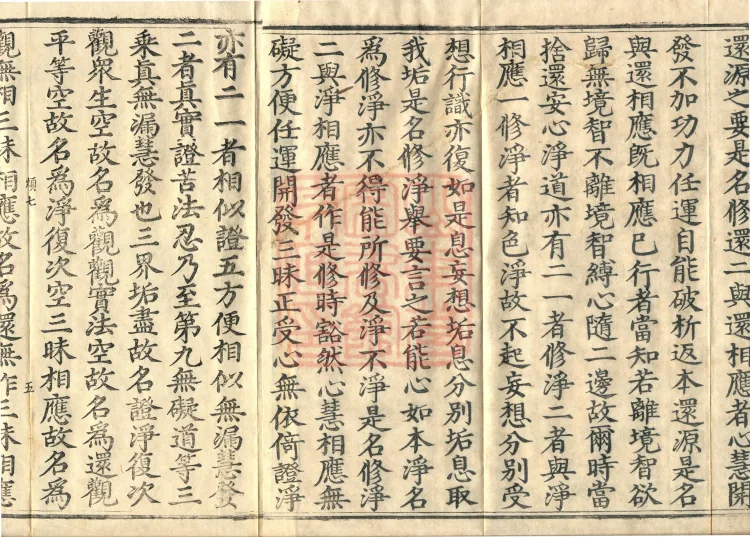 還源之要是名修還二與還相應者心慧開
發不加功力任運自能破析返本還源是名
與還相應既相應已行者當知若離境智欲
歸無境智不離境智縛心隨二邊故爾時當
捨還安心淨道亦有二一者修淨二者與淨
相應一修淨者知色淨故不起妄想分別受
想行識亦復如是息妄想垢息分別垢息取
我垢是名修淨舉要言之若能心如本淨名
為修淨亦不得能所修及淨不淨是名修淨
二與淨相應者作是修時豁然心慧相應無
礙方便任運開發三昧正受心無依倚證淨
亦有二一者相似證五方便相似無漏慧發
二者真實證苦法忍乃至第九無礙道等三
乘真無漏慧發也三界垢盡故名證淨復次
觀衆生空故名為觀觀實法空故名為還觀
平等空故名為淨復次空三昧相應故名為
七 五
觀無相三昧相應故名為還無作三昧相應